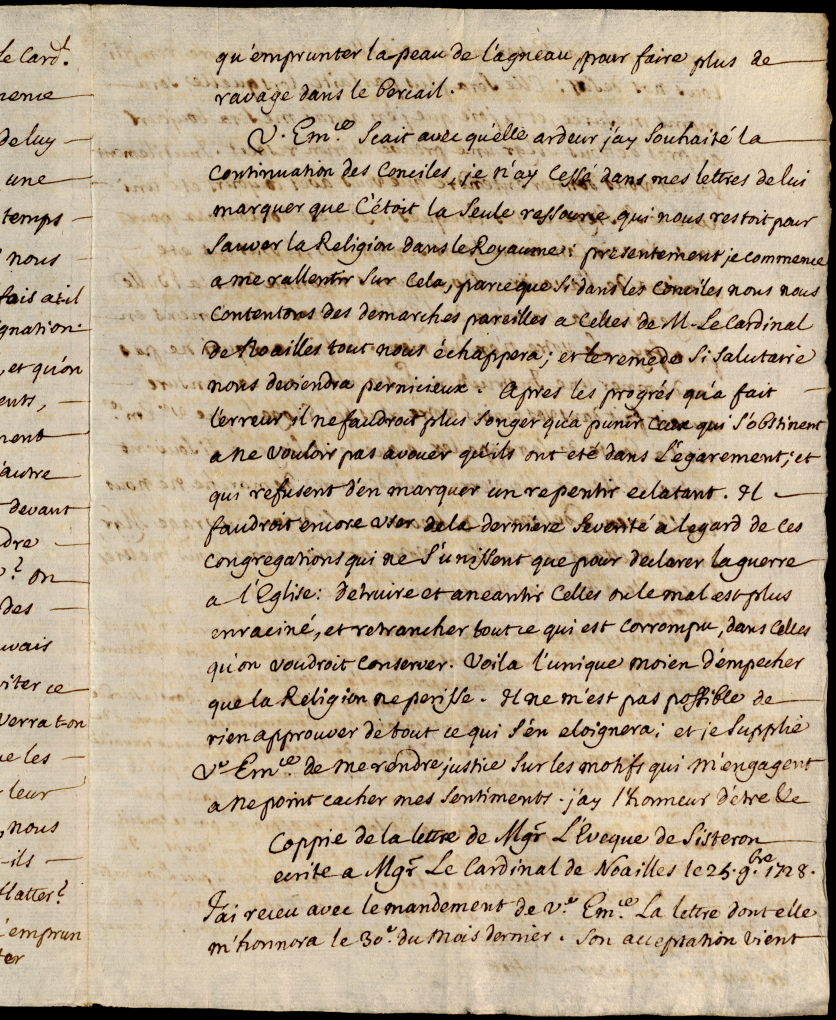 le Card.l
nence
de luy
une
temps
nous
fais a t il
ignation.
, et qu'on
ents,
ment
l'autre
devant
dre
? on
des
uvais
viter ce
verra t-on
ue les
leur
, nous
-ils
flatter?
l'emprun
ter
qu'emprunter la peau de l'agneau, pour faire plus de
ravage dans le bercail.
V. Em.ce Scait avec qu'elle ardeur j'ay souhaité la
Continuation des Conciles, je n'ay Cessé dans mes lettres de lui
marquer que C'étoit la Seule ressource qui nous restoit pour
Sauver la Religion dans le Royaume: presentement je commence
a me rallentir Sur Cela, parceque Si dans les Conciles nous nous
Contentons des demarches pareilles a Celles de M. Le Cardinal
de Noailles tout nous échappera; et le remede Si Salutaire
nous deviendra pernicieux. Apres les progrés qu'a fait
l'erreur il ne faudroit plus Songer qu'a punir Ceux qui S'obstinent
a ne vouloir pas avouer qu'ils ont eté dans L'egarement; et
qui refusent d'en marquer un repentir eclatant. Il
faudroit encore user de la derniere Severité a legard de Ces
Congregations qui ne S'unissent que pour declarer la guerre
a l'Eglise: detruire et aneantir Celles ou le mal est plus
enraciné, et retrancher tout ce qui est Corrompu, dans Celles
qu'on voudroit Conserver. Voila l'unique moien d'empecher
que la Religion ne perisse. Il ne m'est pas possible de
rien approuver de tout ce qui S'en eloignera; et je Supplie
V.e Em.ce de me rendre justice Sur les motifs qui m'engagent
a ne point cacher mes Sentiments. j'ay l'honneur d'être &c
Coppie de la lettre de Mgr L'Eveque de Sisteron
ecrite a Mgr Le Cardinal de Noailles le 25. 9.bre 1728.
J'ai receu avec le mandement de V.e Em.ce La lettre dont elle
m'honnora le 30.e du Mois dernier. Son acceptation vient